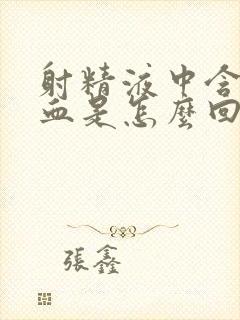 射精液中含
血是怎麼回
張鑫